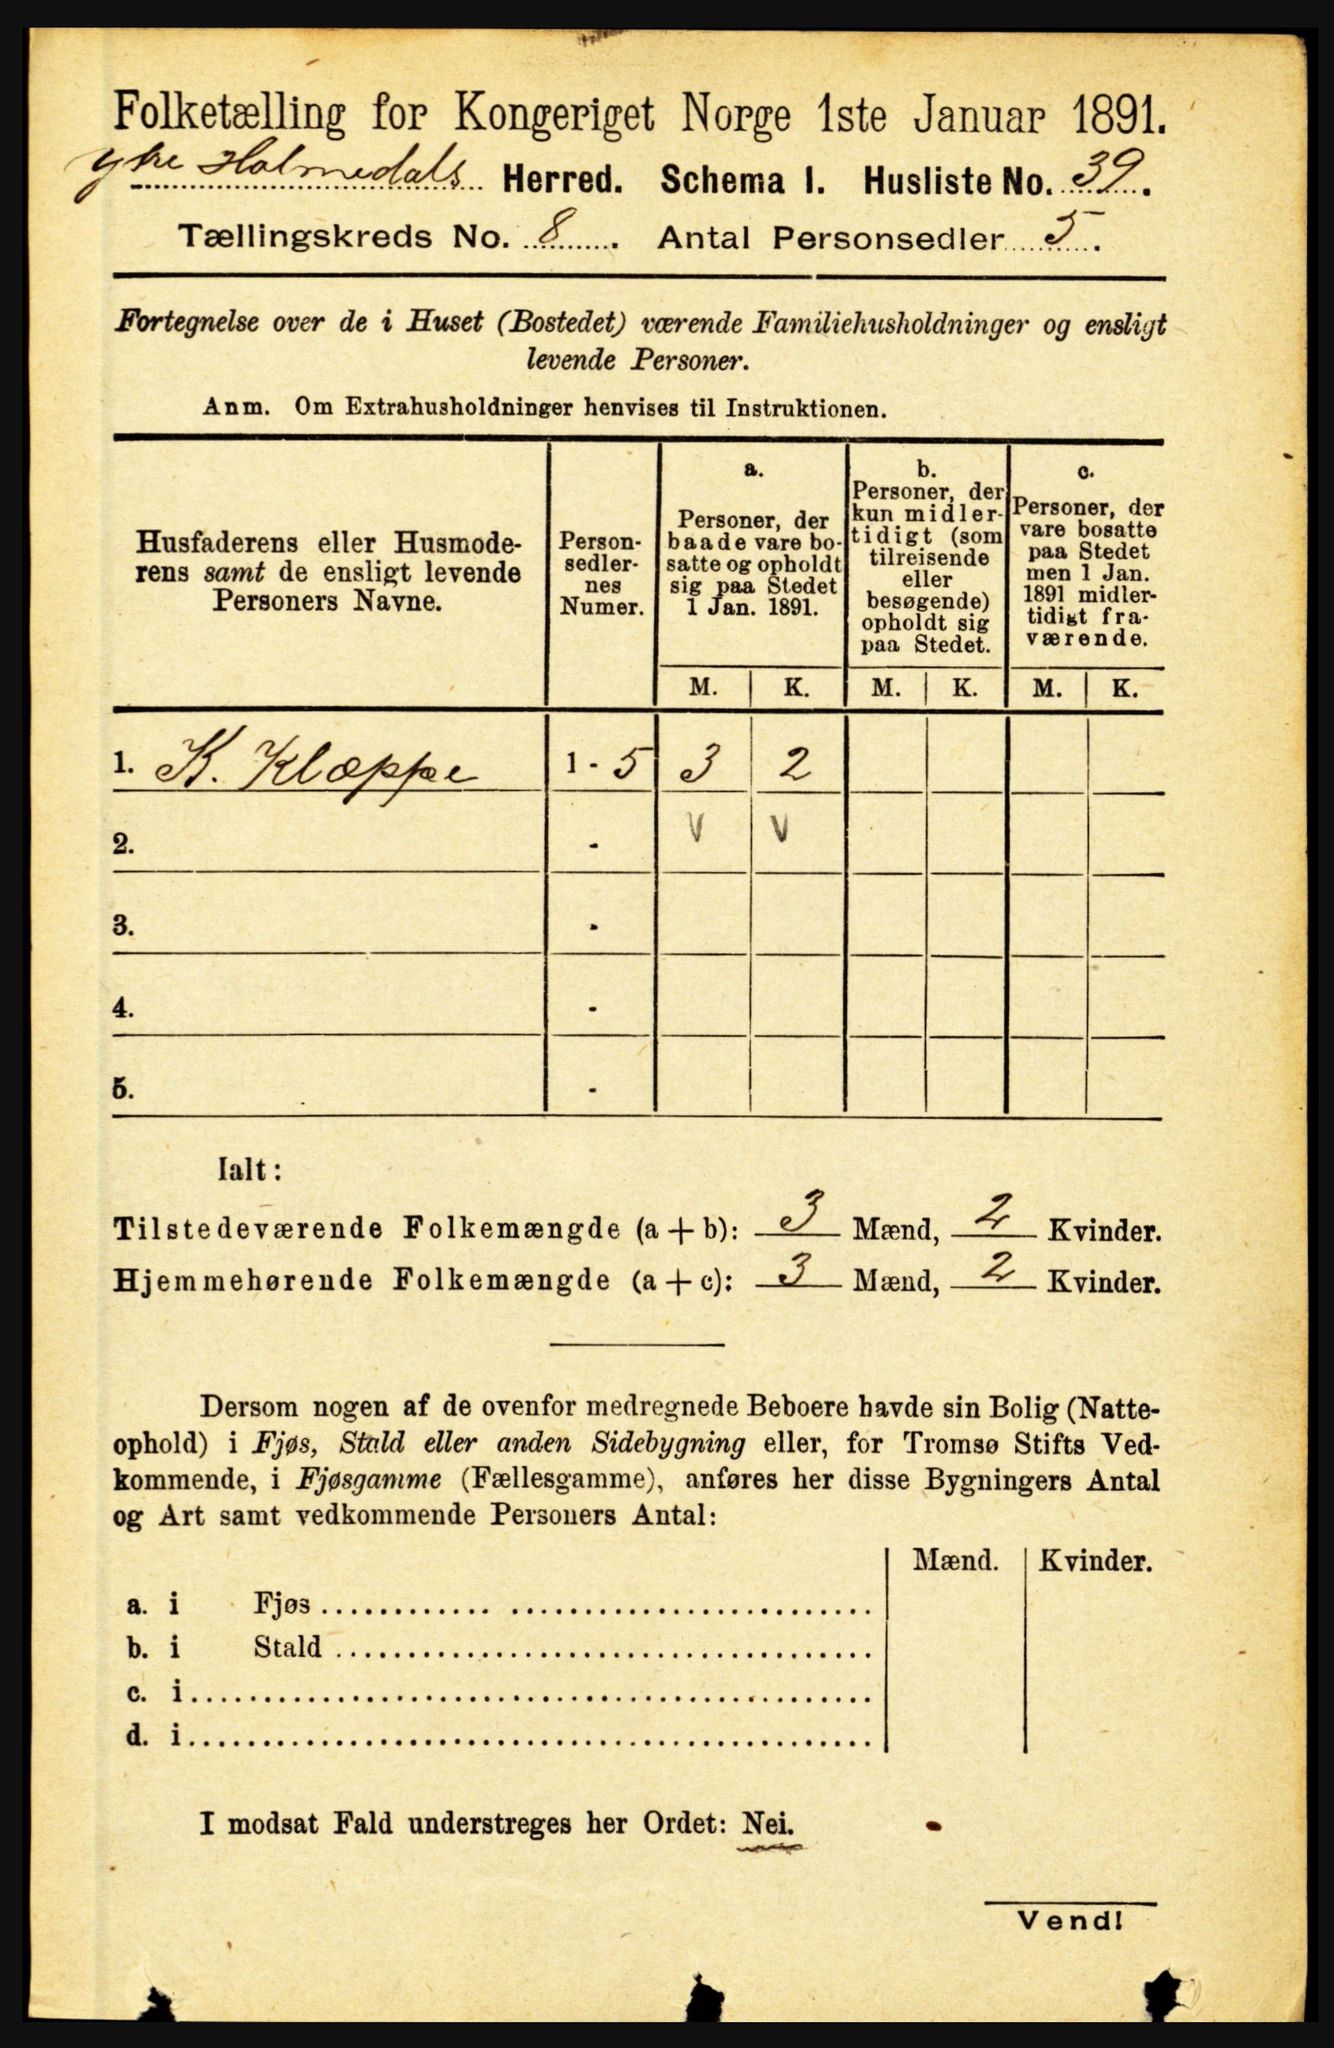 Folketælling for Kongeriget Norge 1ste Januar 1891.
Ytre Holmedals Herred. Schema I. Husliste No. 39.
Tællingskreds No. 8. Antal Personsedler 5.
Fortegnelse over de i Huset (Bostedet) værende Familiehusholdninger og ensligt
levende Personer.
Anm. Om Extrahusholdninger henvises til Instruktionen.
Husfaderens eller Husmode-
rens samt de ensligt levende
Personers Navne.
Person-
sedler-
nes
Numer.
a.
Personer, der
baade vare bo-
satte og opholdt
sig paa Stedet
1 Jan. 1891.
b.
Personer, der
kun midler-
tidigt (som
tilreisende
eller
besøgende)
opholdt sig
paa Stedet.
c.
Personer, der
vare bosatte
paa Stedet
men 1 Jan.
1891 midler-
tidigt fra-
værende.
M. K. M. K. M. K.
1. K. Klæppe 1 - 5 3 2
2. - v v
3. -
4. -
5. -
Ialt:
Tilstedeværende Folkemængde (a + b): 3 Mænd, 2 Kvinder.
Hjemmehørende Folkemængde (a + c): 3 Mænd, 2 Kvinder.
Dersom nogen af de ovenfor medregnede Beboere havde sin Bolig (Natte-
ophold) i Fjøs, Stald eller anden Sidebygning eller, for Tromsø Stifts Ved-
kommende, i Fjøsgamme (Fællesgamme), anføres her disse Bygningers Antal
og Art samt vedkommende Personers Antal:
Mænd. Kvinder.
a. i Fjøs
b. i Stald
c. i
d. i
I modsat Fald understreges her Ordet: Nei.
Vend!